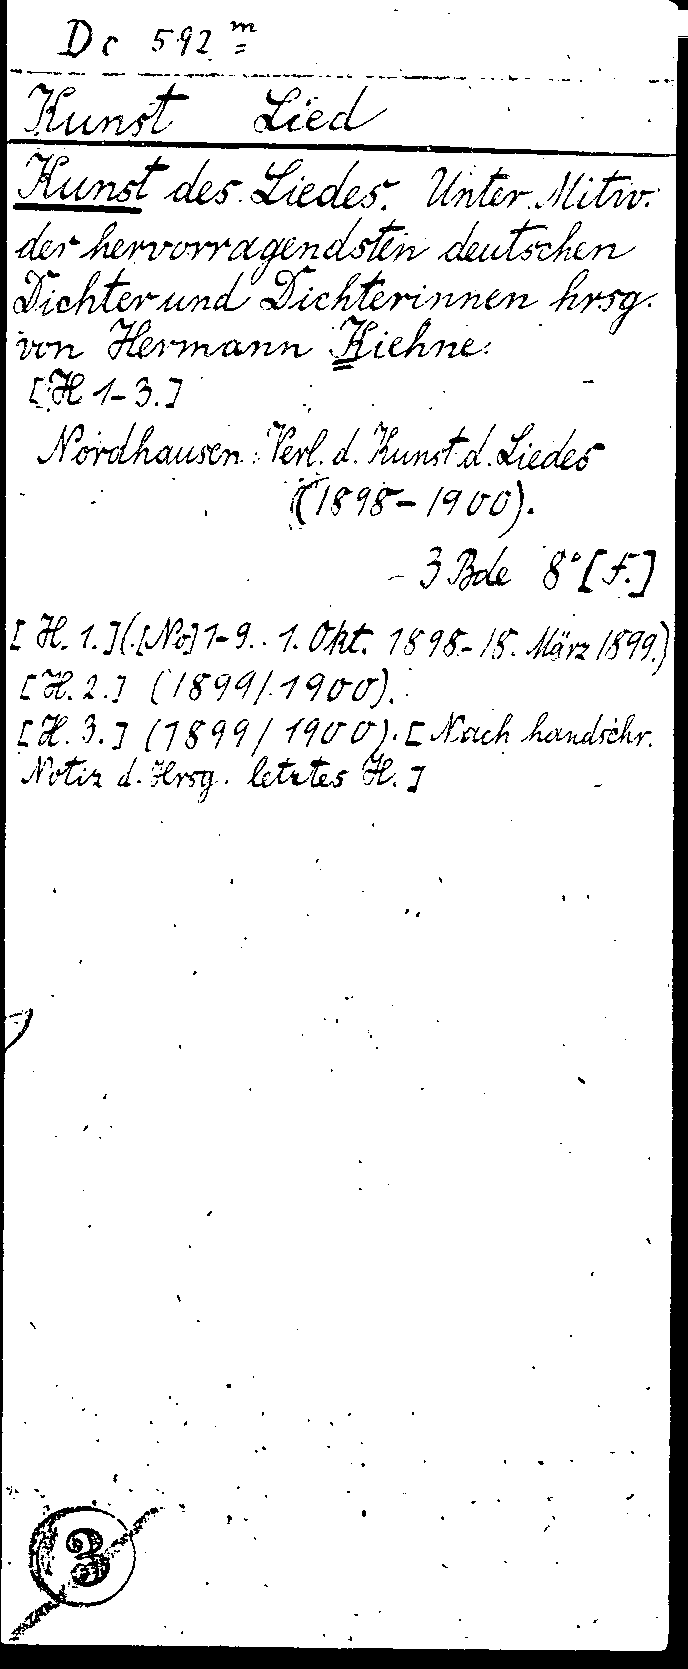 Dc 592 m
Kunst Lied
Kunst des Liedes. Unter Mitw.
der hervorragendsten deutschen
Dichter und Dichterinnen hrsg.
von Hermann Kiehne.
[H 1-3.]
Nordhausen: Verl. d. Kunst d. Liedes
(1898-1900).
3 Bde 8° [F.]
[H. 1.] ([No] 1-9. 1. Okt. 1898.-15. März 1899.)
[H. 2.] (1899/1900).
[H. 3.] (1899/1900). [Nach handschr.
Notiz d. Hrsg. letztes H.]
3